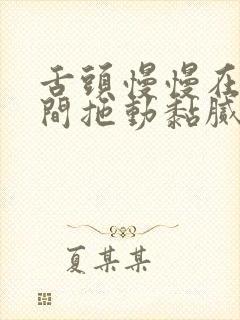 舌頭慢慢在
間拖動黏膩
夏某某